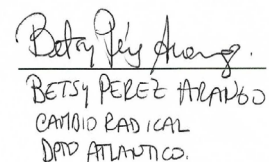 Betsy Pérez Arango.
BETSY PEREZ ARANGO
CAMBIO RADICAL
DPTO ATLANTICO.